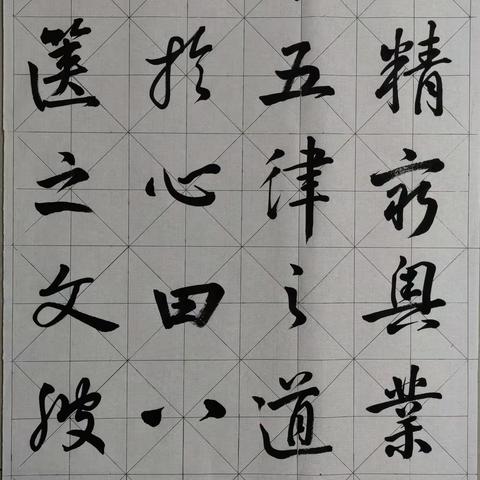 精窮奧業
五律之道
於心田八
篋之文波